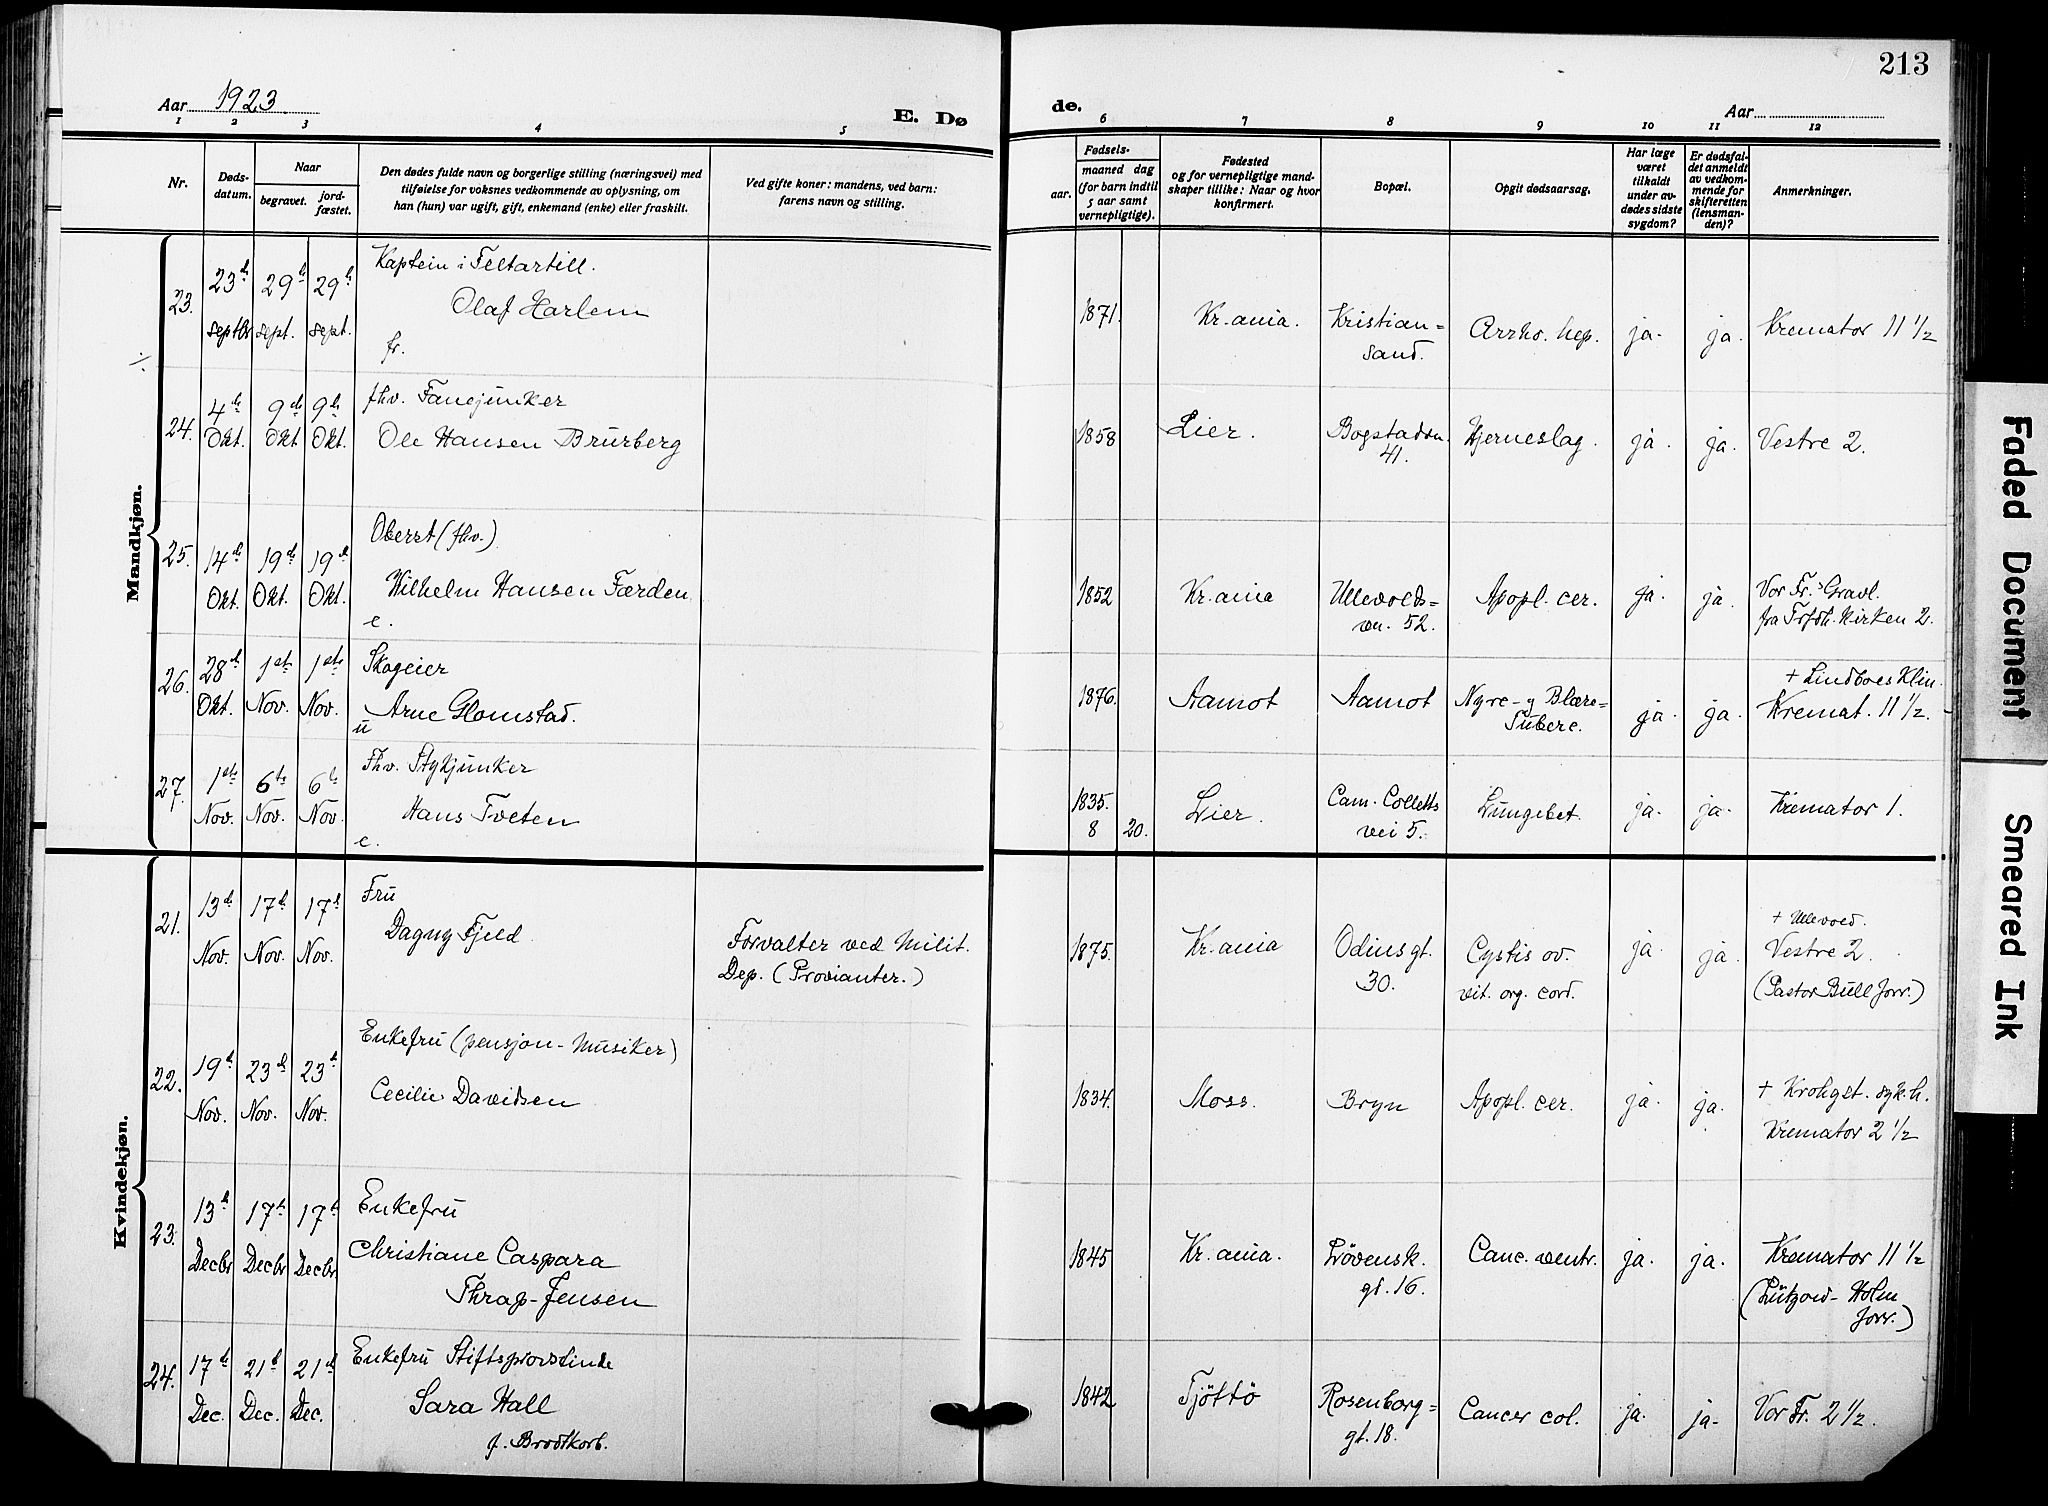 213
Aar 1923
E. Dø
de.
Aar
1 2 3 4 5 6 7 8 9 10 11 12
Nr.
Døds-
datum.
Naar
begravet.
jord-
fæstet.
Den dødes fulde navn og borgerlige stilling (næringsvei) med
tilføielse for voksnes vedkommende av oplysning, om
han (hun) var ugift, gift, enkemand (enke) eller fraskilt.
Ved gifte koner: mandens, ved barn:
farens navn og stilling.
Fødsels-
aar.
maaned dag
(for barn indtil
5 aar samt
vernepligtige).
Fødested
og for vernepligtige mand-
skaper tillike: Naar og hvor
konfirmert.
Bopæl.
Opgit dødsaarsag.
Har læge
været
tilkaldt
under av-
dødes sidste
sygdom?
Er dødsfal-
det anmeldt
av vedkom-
mende for
skifteretten
(lensman-
den)?
Anmerkninger.
Mandkjøn.
23. 23de septbr 29de sept. 29de sept.
Kaptein i Feltartill.
Olaf Harlem
fr.
1871. Kr.ania. Kristian=
sand.
Cirrho. hep. ja. ja. Kremator 11 1/2
24. 4de Okt. 9de Okt. 9de Okt.
fhv. Fanejunker
Ole Hansen Brurberg
1858 Lier. Bogstadsv.
41.
Hjerneslag. ja. ja. Vestre 2.
25. 14de Okt. 19de Okt. 19de Okt.
Oberst (fhv.)
Wilhelm Hansen Færden
e.
1852 Kr.ania Ullevolds=
vn. 52.
Apopl. cer. ja. ja. Vor Fr.s Gravl.
fra Trfoh. Kirken 2.
26. 28de Okt. 1ste Nov. 1ste Nov.
Skogeier
Arne Glomstad.
u
1876. Aamot Aamot Nyre- og Blære=
Tuberc.
ja. ja. + Lindboes Klin.
Kremat. 11 1/2.
27. 1ste Nov. 6te Nov. 6te Nov.
Fhv. Stykjunker
Hans Tveten
e.
1835. 8 20. Lier. Cam. Colletts
vei 5.
Lungebet. ja. ja. Kremator 1.
Kvindekjøn.
21. 13de Nov. 17de Nov. 17de Nov.
Fru
Dagny Fjeld
Forvalter ved Milit.
Dep. (Provianter.)
1875. Kr.ania Odinsgt.
30.
Cystis ov.
vit. org. cord.
ja. ja. + Ullevold.
Vestre 2.
(Pastor Bull forr.)
22. 19de Nov. 23de Nov. 23de Nov.
Enkefru (pensjon- Musiker)
Cecilie Davidsen
1834. Moss. Bryn Apopl. cer. ja. ja. + Krohgst. syk.h.
Kremator 2 1/2
23. 13de Decbr 17de Decbr 17de Decbr
Enkefru
Christiane Caspara
Thrap-Jensen
1845 Kr.ania. Lövensk.
gt. 16.
Canc. ventr. ja. ja. Kremator 11 1/2
(Lützow- Holm
forr.)
24. 17de Dec. 21de Dec. 21de Dec.
Enkefru Stiftsprovstinde
Sara Hall
f. Brodtkorb.
1842 Tjöttö Rosenborg=
gt. 18.
Cancer col. ja. ja. Vor Fr. 2 1/2.
Faded Document
Smeared Ink